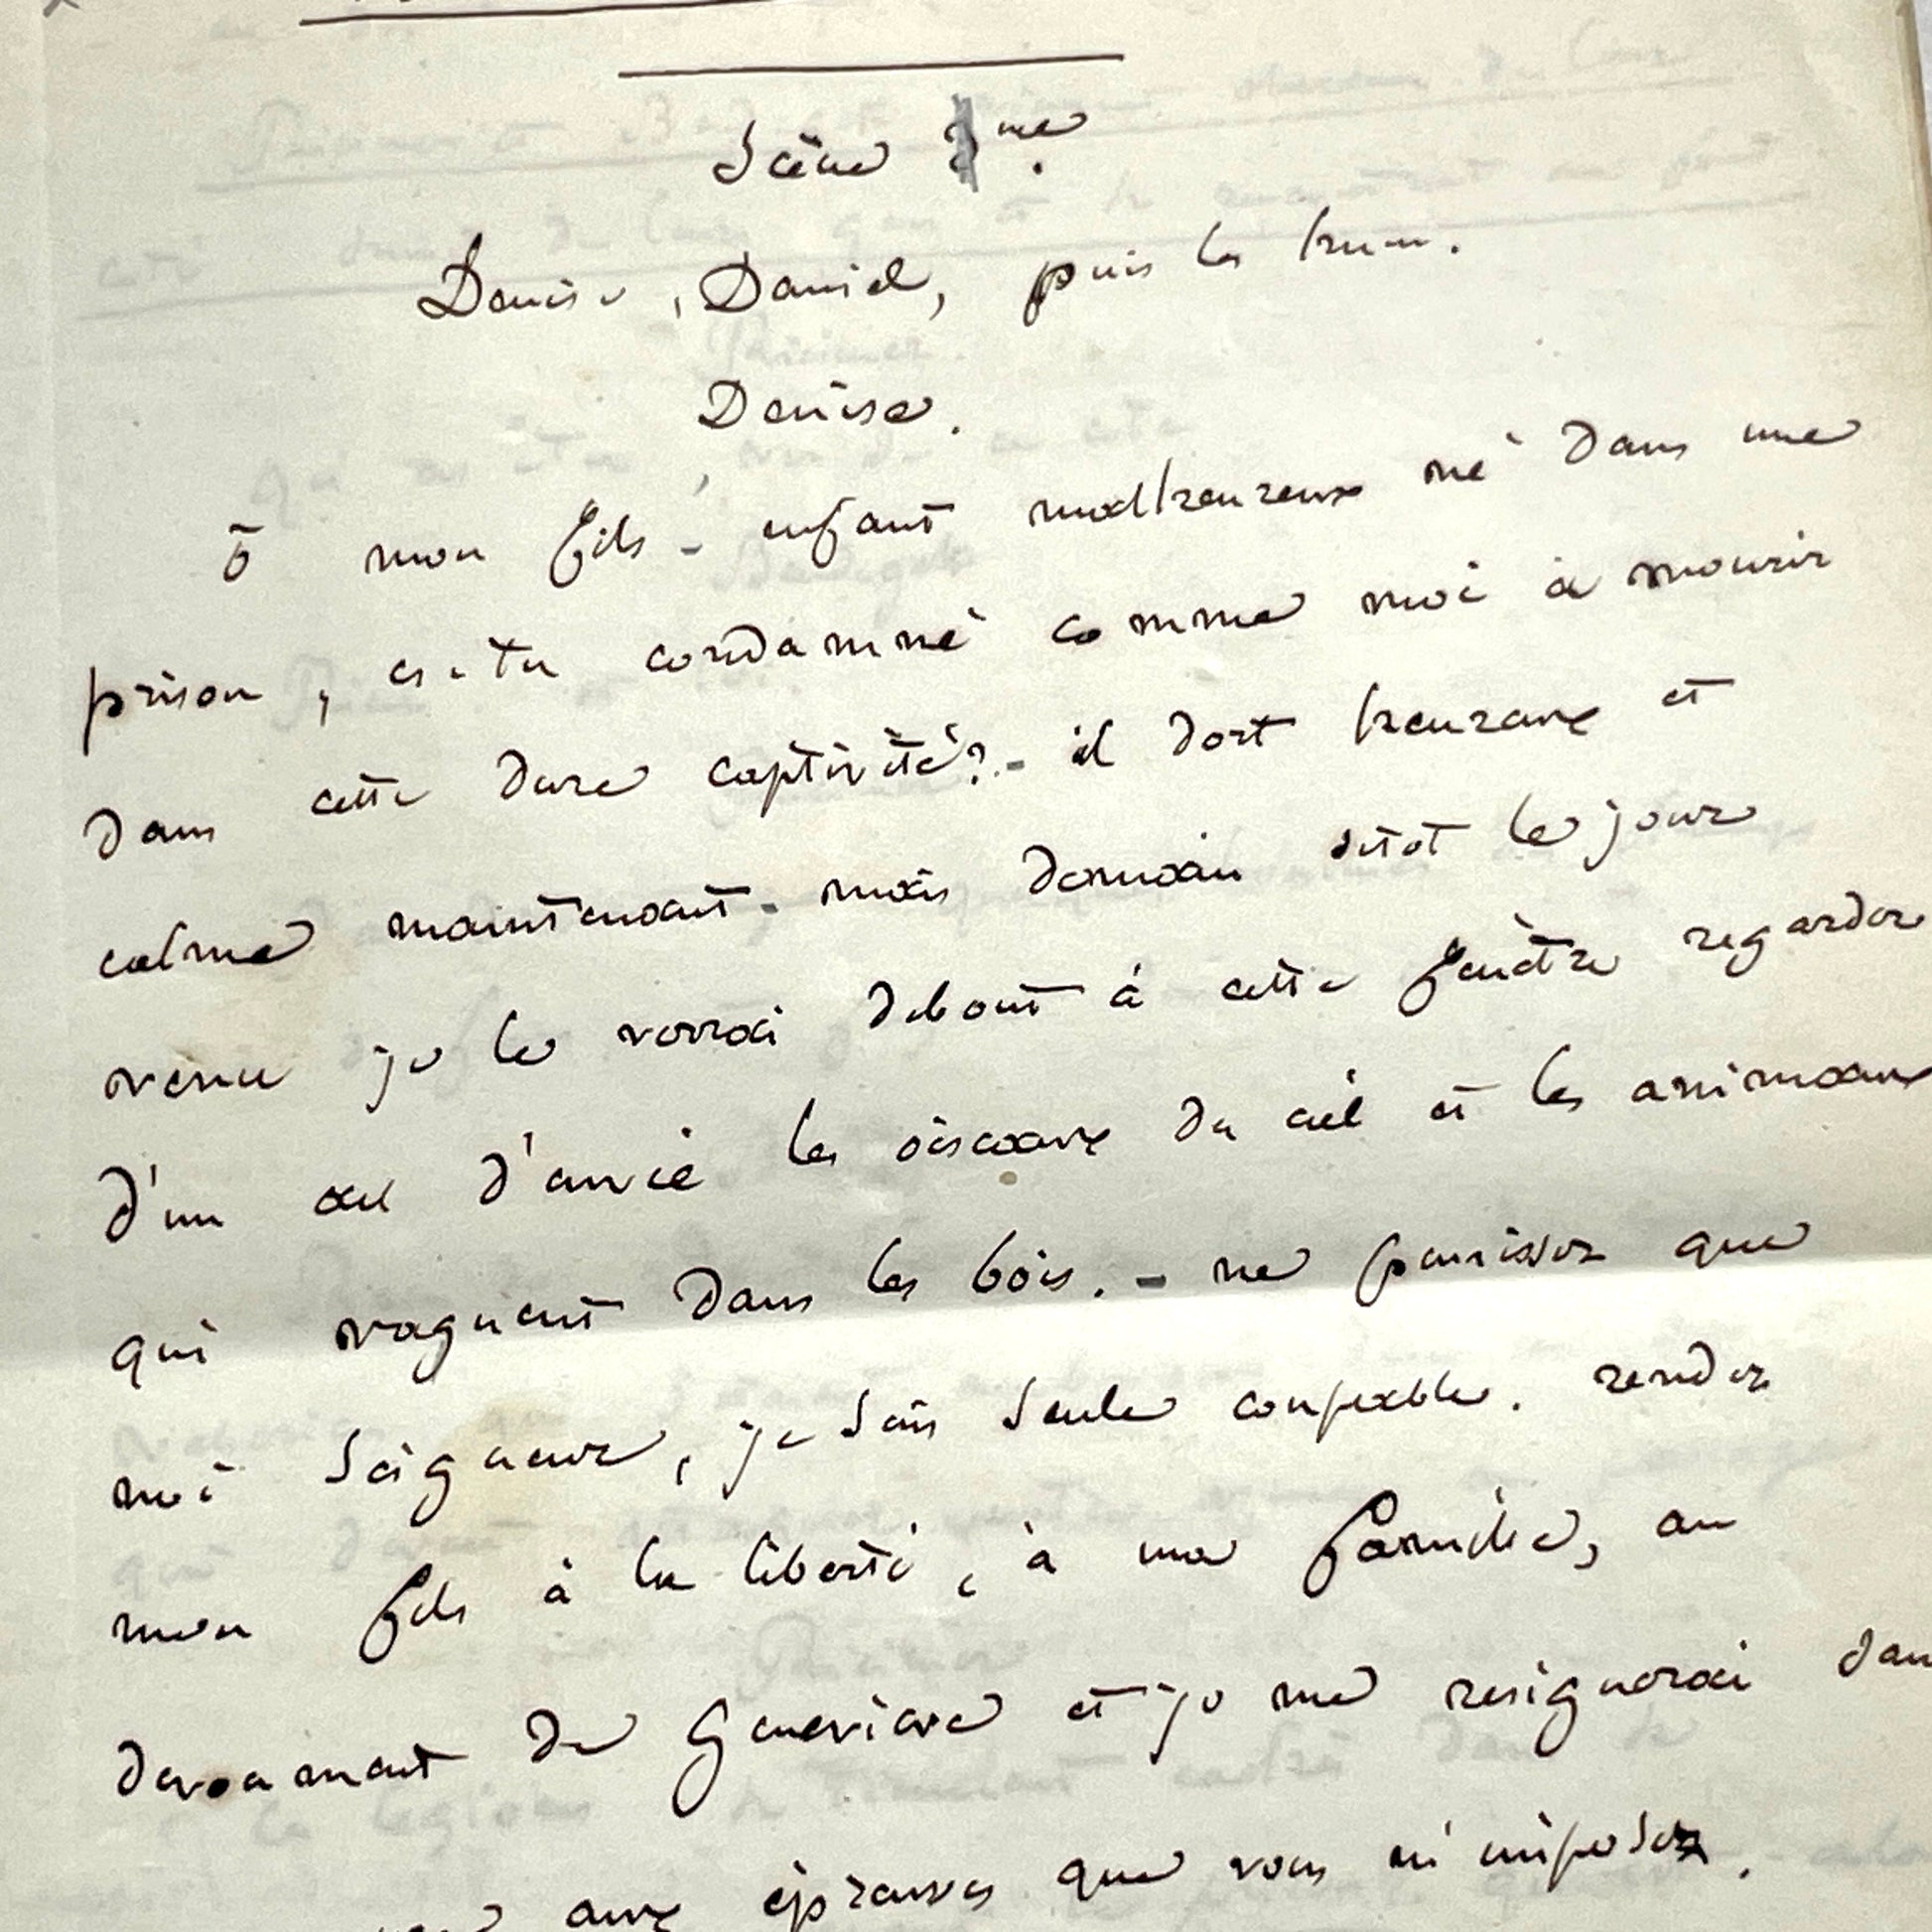 Scène 3me.
Denise, Daniel, puis les
Denise.
ô mon fils - enfant malheureux né dans une
prison, es-tu condamné comme moi à mourir
dans cette dure captivité? - il dort heureux et
calme maintenant - mais demain sitôt le jour
venu je le verrai debout à cette fenêtre regarder
d'un œil d'envie les oiseaux du ciel et les animaux
qui vaguent dans les bois. - ne punissez que
moi Seigneur, je suis seule coupable. rendez
mon fils à la liberté, à ma famille, au
devouement de Geneviève et je me resignerai dans
aux épreuves que vous m'imposez.